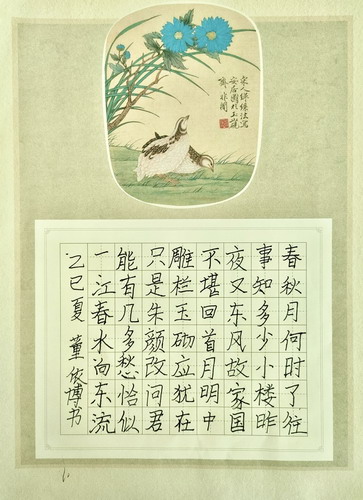 宋人緙絲法寫
安居圖於玉
非闇
春秋月何时了往
事知多少小楼昨
夜又东风故家国
不堪回首月明中
雕栏玉砌应犹在
只是朱颜改问君
能有几多愁恰似
一江春水向东流
乙巳夏 董依博书